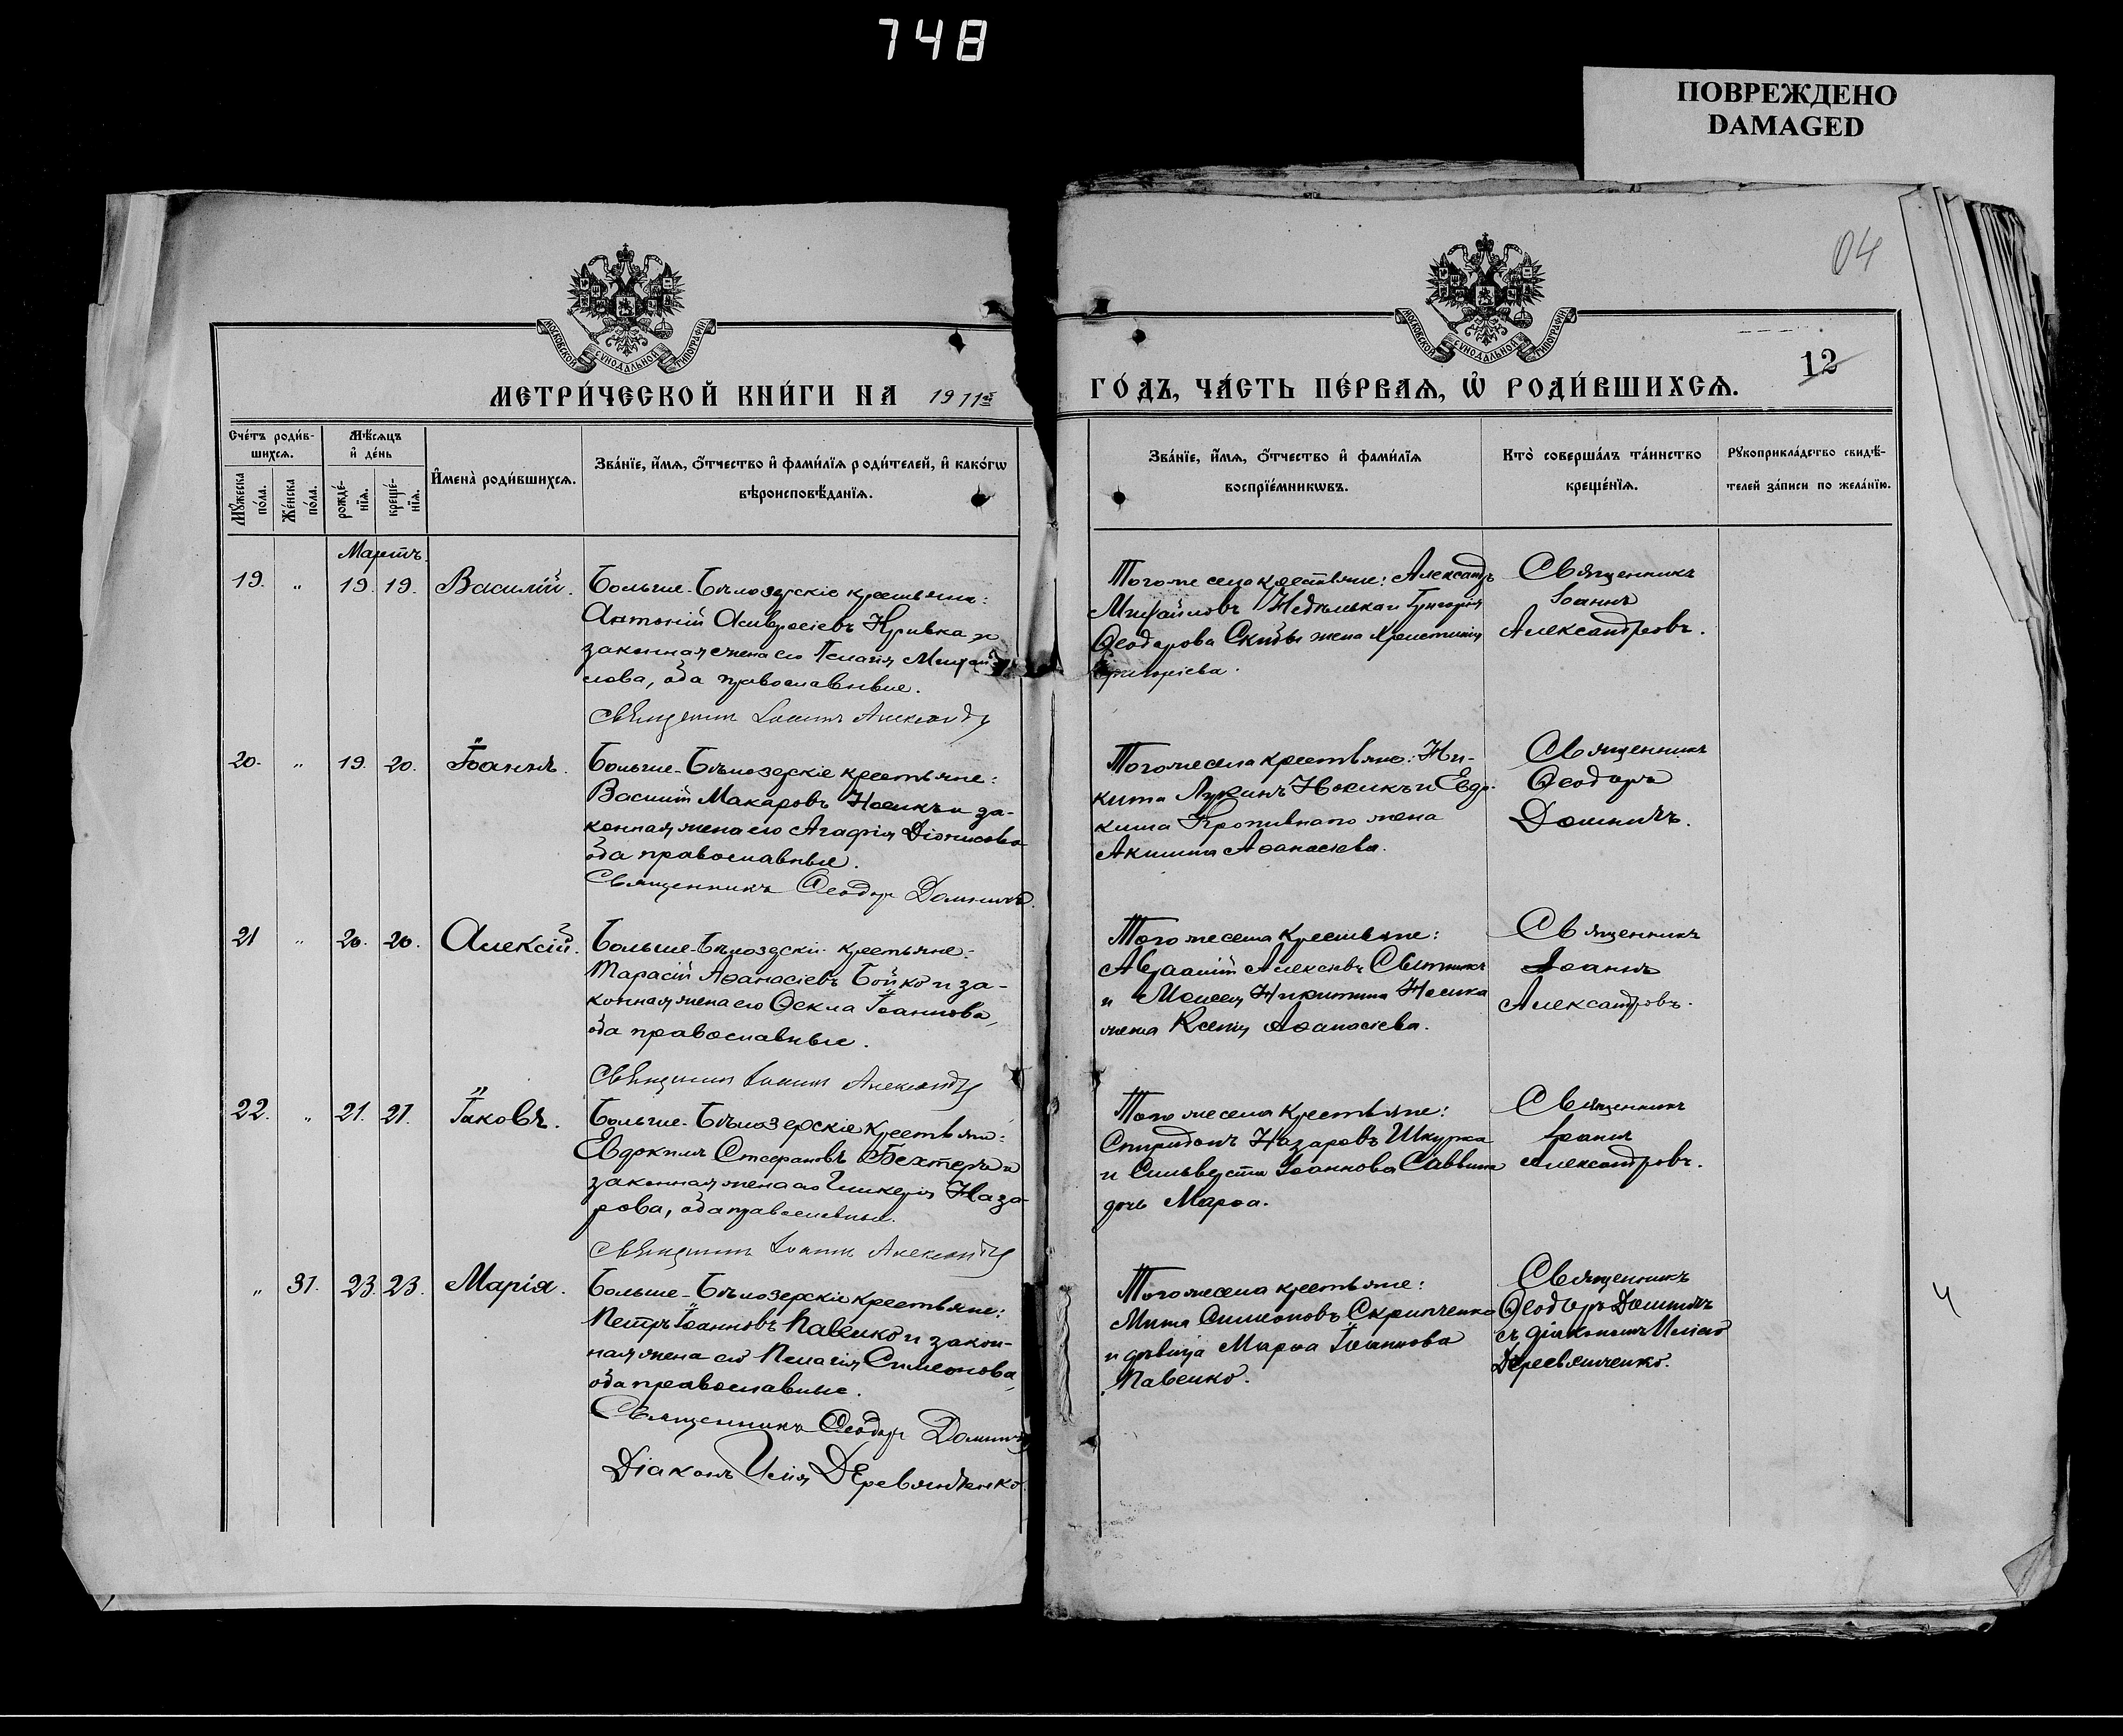 748
ПОВРЕЖДЕНО
DAMAGED
04
МОСКОВСКОЙ СѴНОДАЛЬНОЙ ТИПОГРАФІИ
МОСКОВСКОЙ СѴНОДАЛЬНОЙ ТИПОГРАФІИ
12
МЕТРИ́ЧЕСКОЙ КНИ́ГИ НА 1911й
ГО́ДЪ, ЧА́СТЬ ПЕ́РВАѦ, Ѡ҆ РОДИ́ВШИХСѦ.
Сче́тъ роди́в-
шихсѧ.
Мꙋ́жеска по́ла.
Же́нска по́ла.
Мѣ́сѧцъ
и҆ де́нь
рожде́-нїѧ.
креще́-нїѧ.
И҆мена̀ роди́вшихсѧ.
Зва́нїе, и҆́мѧ, ѻ҆́тчество и҆ фами́лїѧ роди́телей, и҆ како́гѡ
вѣроисповѣ́данїѧ.
Зва́нїе, и҆́мѧ, ѻ҆́тчество и҆ фами́лїѧ
воспрїе́мникѡвъ.
Кто̀ соверша́лъ та́инство
креще́нїѧ.
Рꙋкоприкла́дство свидѣ́-
телей за́писи по жела́нїю.
Мартъ.
19. " 19. 19. Василій.
Больше-Бѣлозерскіе крестьяне:
Антоній Амвросіевъ Кривка и
законная жена его Пелагія Михай
лова, оба православные.
Священникъ Іоаннъ Александровъ
Того же села крестьяне: Александръ
Михайловъ Недѣлька и Григорія
Ѳеодорова Скибы жена Христина
Григоріева.
Священникъ
Іоаннъ
Александровъ.
20. " 19. 20. Іоаннъ.
Больше-Бѣлозерскіе крестьяне:
Василій Макаровъ Носикъ и за-
конная жена его Агафія Діонисова
оба православные.
Священникъ Ѳеодоръ Домничъ.
Того же села крестьяне: Ни-
кита Лукинъ Носикъ и Евдо-
кима Кропивнаго жена
Акилина Аѳанасіева.
Священникъ
Ѳеодоръ
Домничъ.
21 " 20. 20. Алексій.
Больше-Бѣлозерскіе крестьяне:
Тарасій Аѳанасіевъ Бойко и за-
конная жена его Ѳекла Іоаннова,
оба православные.
Священникъ Іоаннъ Александровъ
Того же села крестьяне:
Авраамій Алексіевъ Свитникъ
и Моисея Никитина Носика
жена Ксенія Аѳанасіева.
Священникъ
Іоаннъ
Александровъ.
22. " 21. 21. Іаковъ.
Больше-Бѣлозерскіе крестьяне:
Евдокимъ Стефановъ Бехтеръ и
законная жена его Гликерія Наза
рова, оба православные.
Священникъ Іоаннъ Александровъ
Того же села крестьяне:
Спиридонъ Назаровъ Шкурка
и Сильвестра Іоаннова Саввина
дочь Марѳа.
Священникъ
Іоаннъ
Александровъ.
" 31. 23. 23. Марія.
Больше-Бѣлозерскіе крестьяне:
Петръ Іоанновъ Павенко и закон-
ная жена его Пелагія Симеонова,
оба православные.
Священникъ Ѳеодоръ Домничъ
Діаконъ Илія Деревянченко
Того же села крестьяне:
Симеоновъ Скрипченко
и дѣвица Марѳа Іоаннова
Павенко.
Священникъ
Ѳеодоръ Домничъ
съ діакономъ Иліею
Деревянченко.